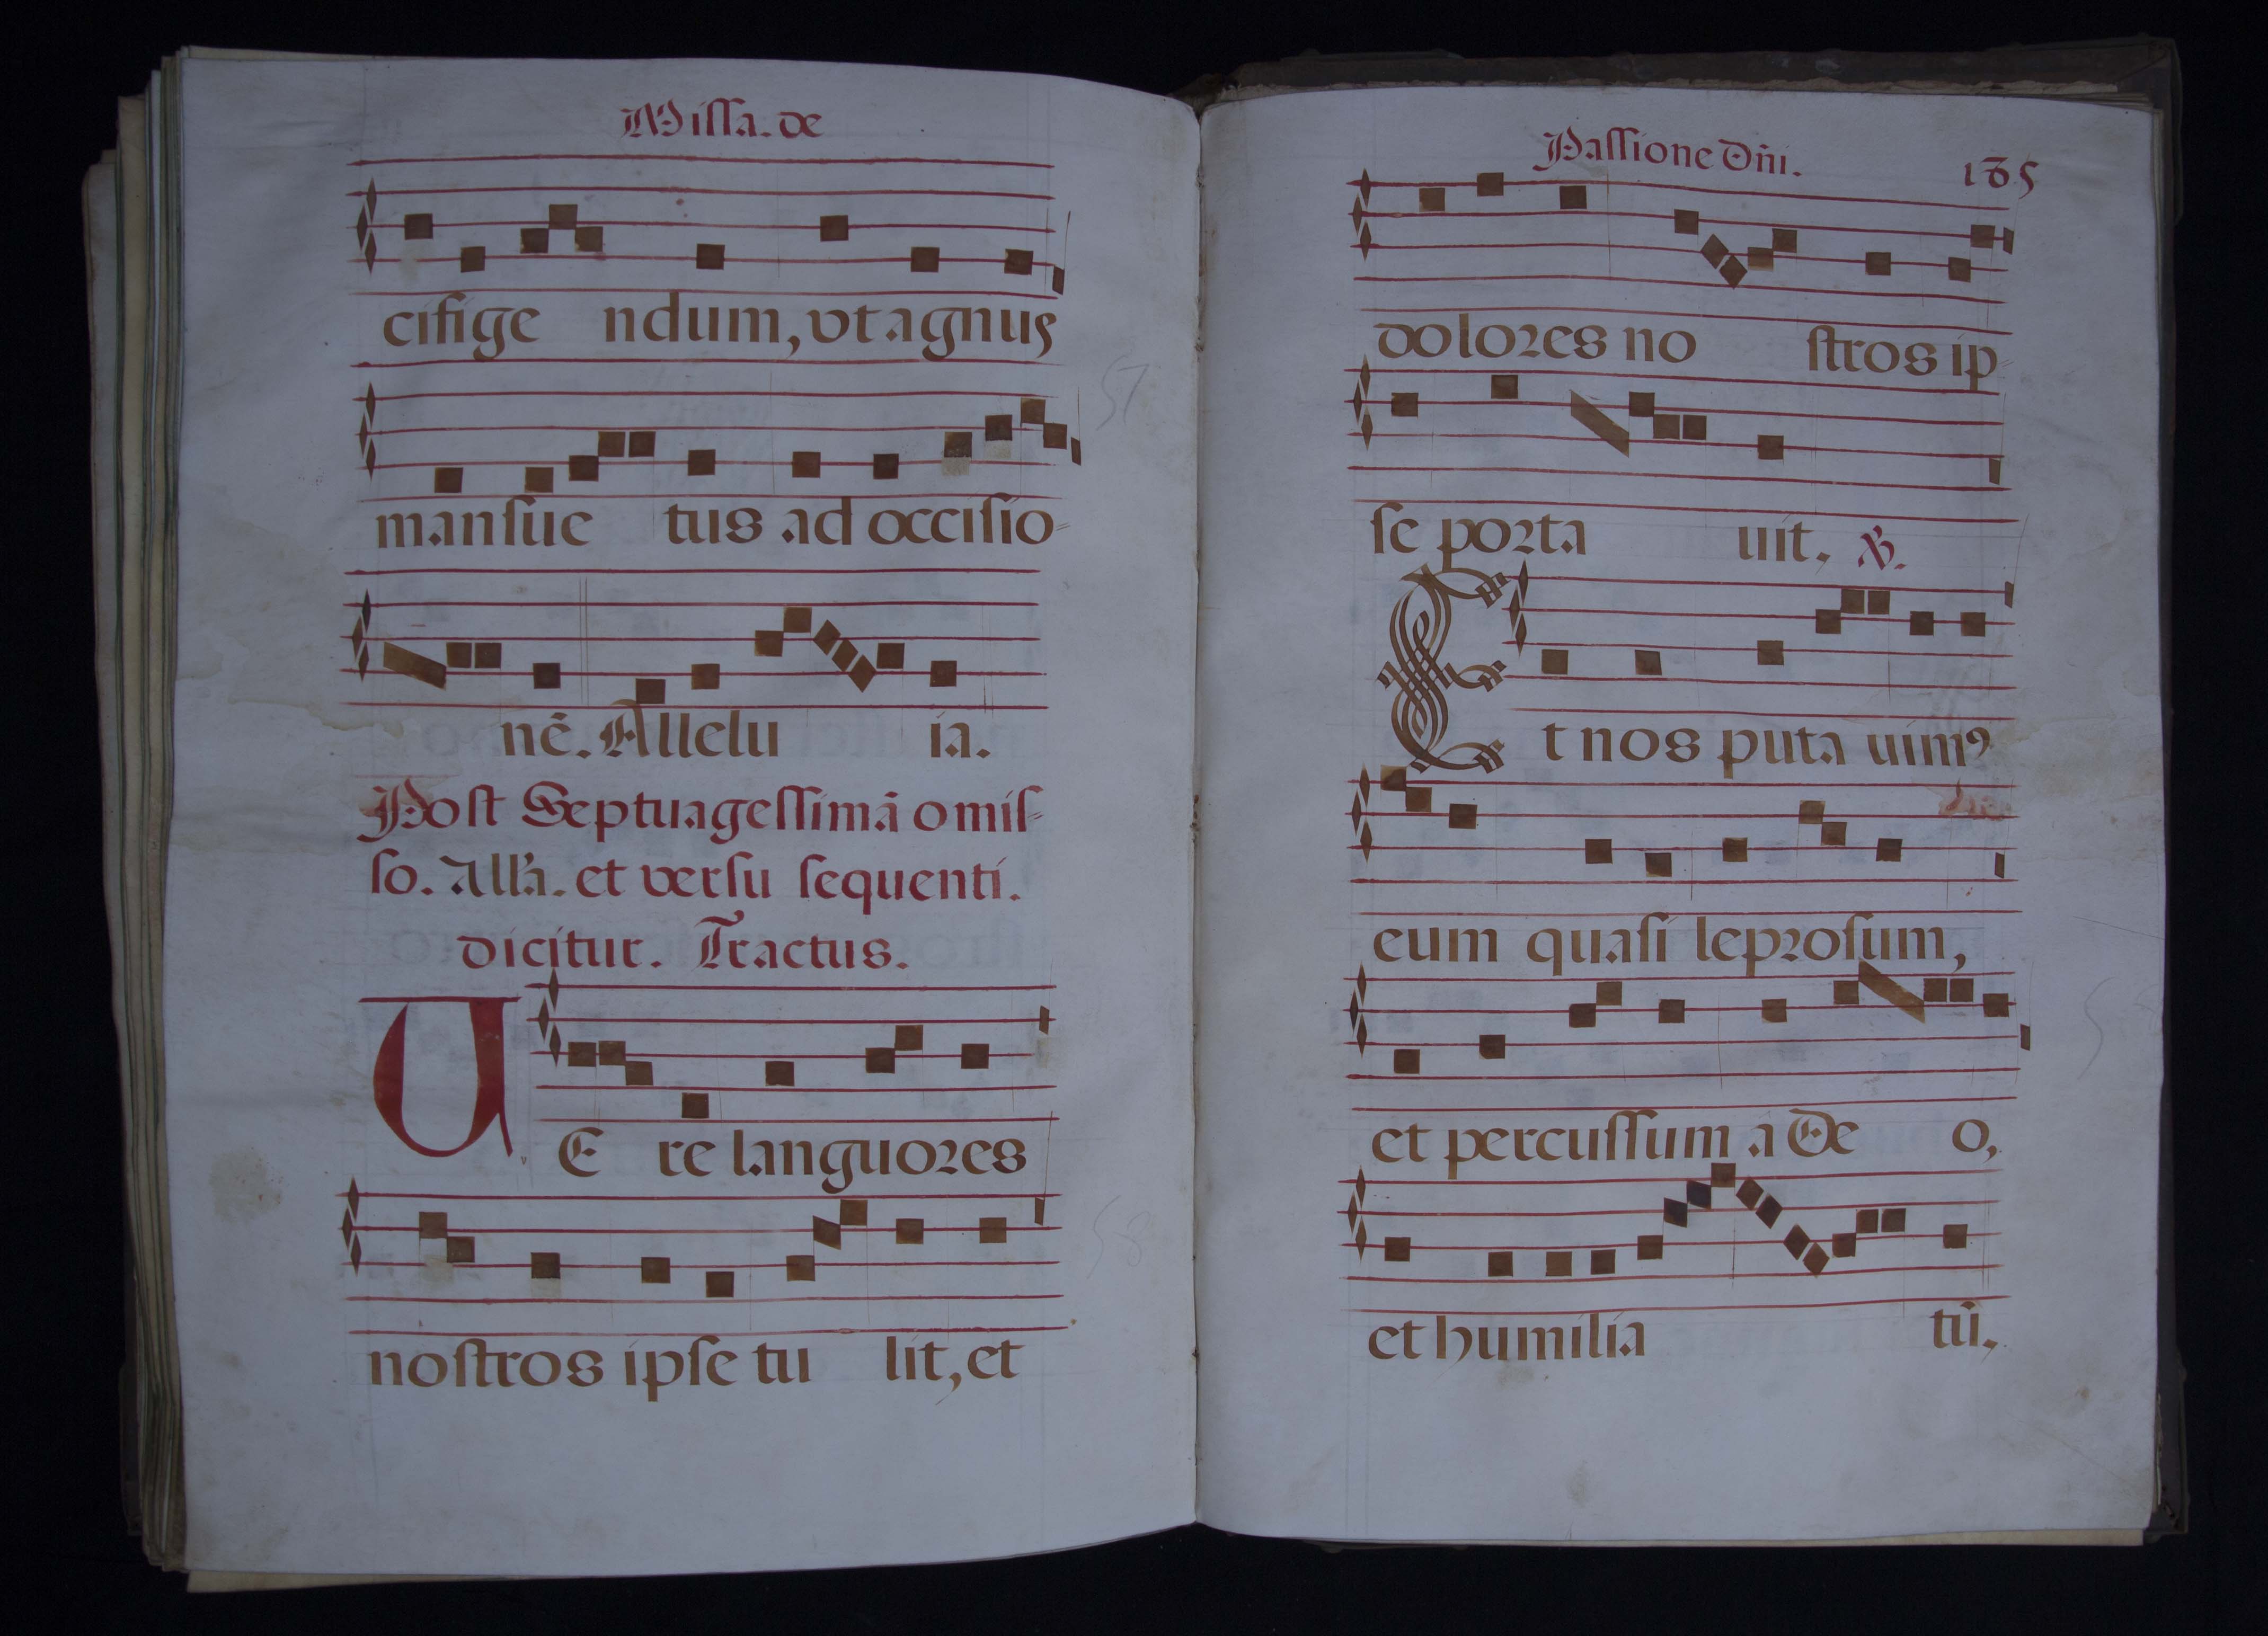 Missa. de
cifige ndum, vt agnus
mansue tus ad occisio-
nē. Allelu ia.
Post Septuagessimā omis-
so. All'a. et versu sequenti.
dicitur. Tractus.
VE re languores
nostros ipse tu lit, et
57
58
Passione Dñi. 185
dolores no stros ip-
se porta uit. ℣.
Et nos puta uimꝰ
eum quasi leprosum,
et percussum a De o,
et humilia tū.